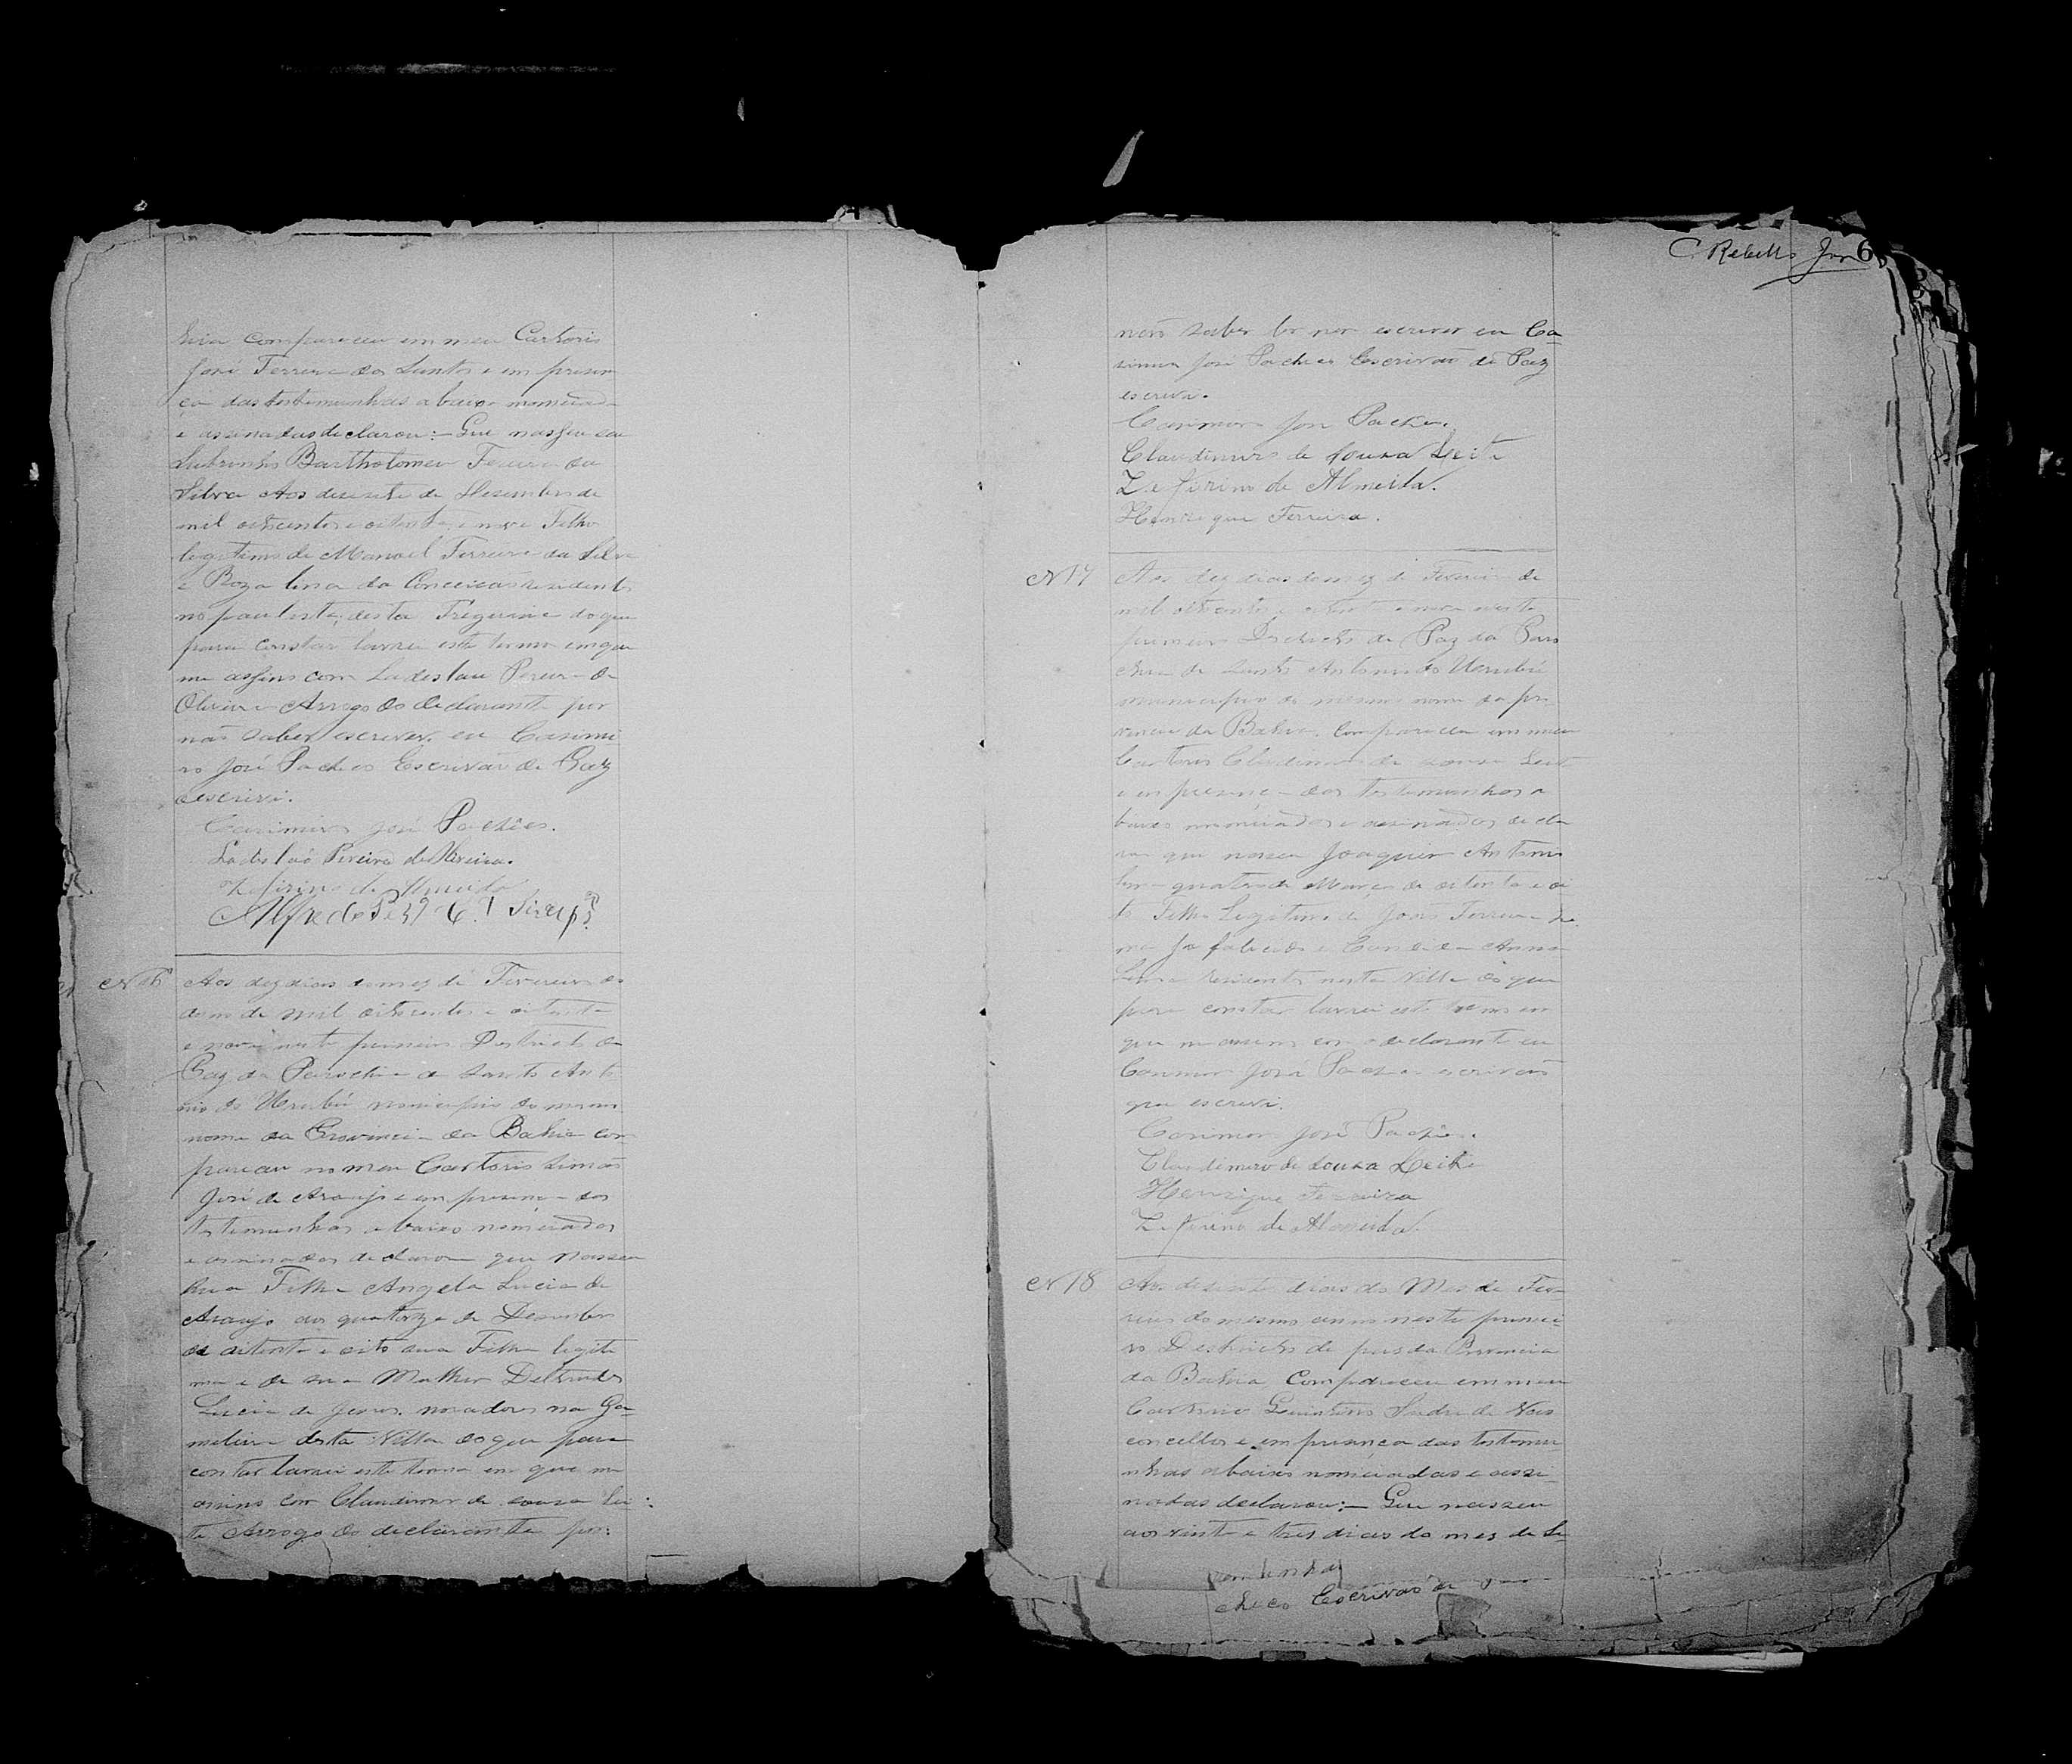 hia compareceu em meu Cartorio
José Ferreira dos Santos e em presen
ça das testemunhas abaixo nomeiadas
e assinadas declarou:- Que nasseu seu
Subrinho Bartholomeu Ferreira da
Silva Aos desesete de Desembro de
mil oitocentos e oitenta e nove Filho
legitimo de Manoel Ferreira da Silva
e Roza Lina da Conceicão residentes
no paulista, desta Freguesia do que
para constar lavrei este termo em que
me assino com Ladeslau Pereira de
Oliveira Arrogo do declarante por
não saber escrever, eu Casimi
ro José Pacheco Escrivão de Paz
o escrivi.
Casimiro José Pacheco.
Ladislaó Pereira de Oliveira.
Zefirino de Almeida
Alfredo
N 16
Aos dez dias do mez de Fevereiro do
anno de mil oitocentos e oitenta
e nove neste primeiro Destricto de
Paz da Parochia de Santo Anto
nio do Urubú municipio do mesmo
nome da Provincia da Bahia com
pareceu no meu Cartorio Simão
José de Araujo e em presença dos
testemunhas abaixo nomeiados
e assinados declarou que nasseu
sua Filha Angela Lucia de
Araujo aos quatorze de Desembro
de oitenta e oito sua Filha legiti
ma e de sua Mulher Deltrudes
Lucia de Jesus. moradores na Ga-
meleira desta Villa do que para
constar lavrei este termo em que me
assino com Claudimiro de Souza Lei:
te Arrogo do declarante por:
C Rebello Jun 6
não saber ler nem escrever eu Ca
simiro José Pacheco Escrivão de Paz
escrivi.
Casimiro José Pacheco.
Claudimiro de Souza Leite
Zefirino de Almeida.
Henrique Ferreira.
N 17
Aos dez dias do mez de Fevereiro de
mil oitocentos e oitenta e nove neste
primeiro Destricto de Paz da Paro
chia de Santo Antonio do Urubú
municipio do mesmo nome da pro
vincia da Bahia. Compareceu em meu
Cartorio Claudimiro de Souza Leite
e em presença dos testemunhos a
baixo nomeiados e assinados decla
rou que nasceu Joaquim Antonio
quatro de Março de oitenta e oi
to Filho Legitimo de José Ferreira
já falecido e Candida Anna
residente nesta Villa do que
para constar lavrei este termo em
que me assino com o declarante eu
Casimiro José Pacheco escrivão
que escrevi.
Casimiro José Pacheco.
Claudimiro de Souza Leite
Henrique Ferreira
Zefirino de Almeida.
N 18
Aos desesete dias do Mes de Feve
reiro do mesmo anno neste primei-
ro Destricto de pas da Provincia
da Bahia Compareceu em meu
Cartorio Quintino de Vas
concellos e em presença das testemu
nhas abaixo nomeiadas e assi
nadas declarou:- Que nasseu
aos vinte e tres dias do mes de Se
checo Escrivão de